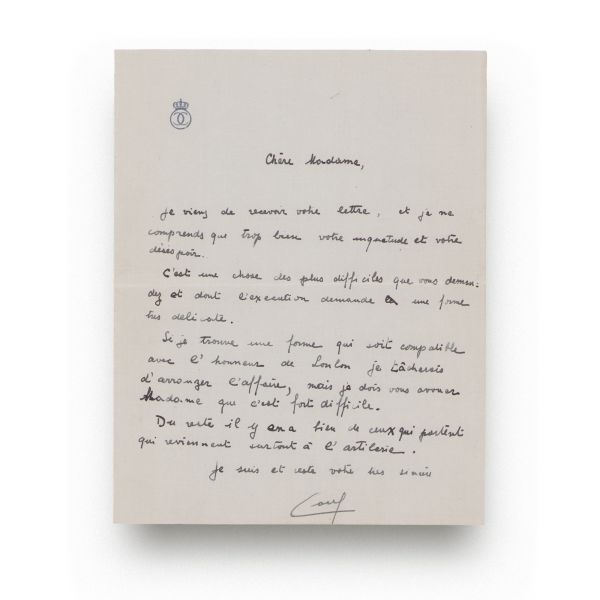 Chère Madame,
je viens de recevoir votre lettre, et je ne
comprends que trop bien votre inquetude et votre
désespoir.
C'est une chose des plus difficiles que vous deman-
dez et dont l'execution demande une forme
tres delicate.
Si je trouve une forme qui soit compatible
avec l'honneur de Loulou je tâcherais
d'arranger l'affaire, mais je dois vous avouer
Madame que c'est fort difficile.
Du reste il y en a bien de ceux qui partent
qui reviennent surtout à l'artilerie.
Je suis et reste votre tres sincère